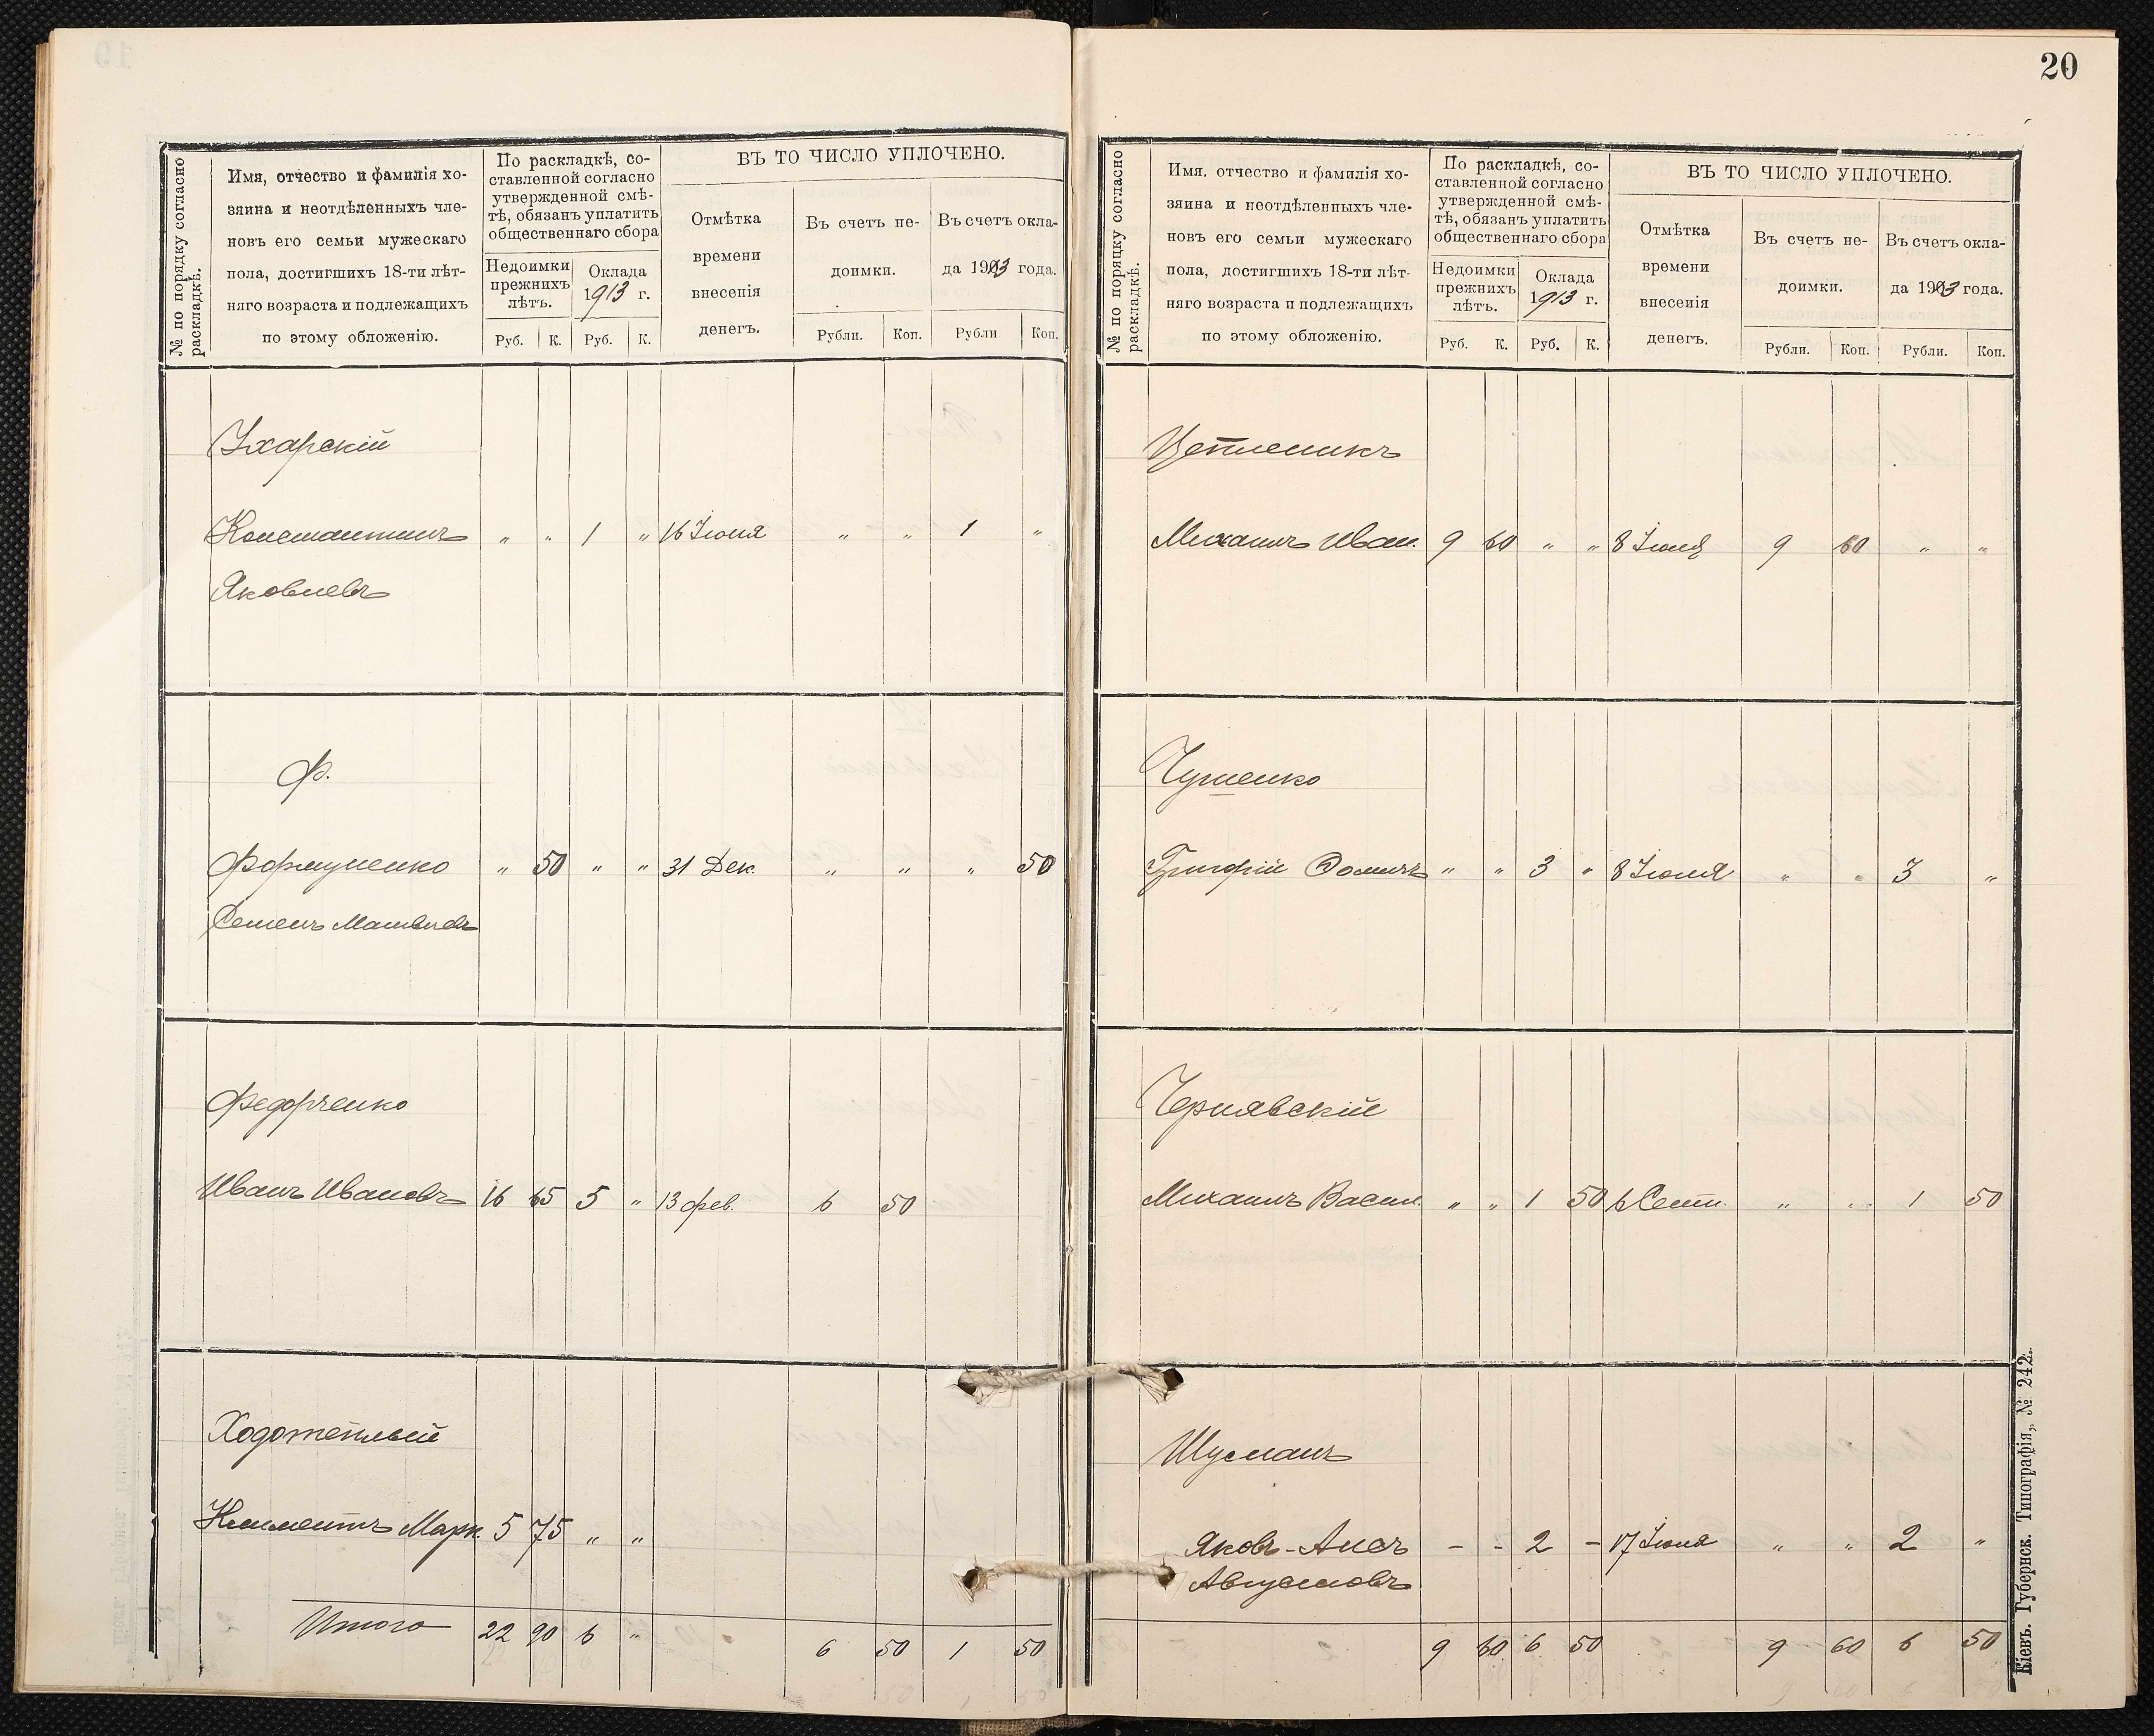 20
№ по порядку согласно
раскладкѣ.
Имя, отчество и фамилія хо-
зяина и неотдѣленныхъ чле-
новъ его семьи мужескаго
пола, достигшихъ 18-ти лѣт-
няго возраста и подлежащихъ
по этому обложенію.
По раскладкѣ, со-
ставленной согласно
утвержденной смѣ-
тѣ, обязанъ уплатить
общественнаго сбора
Недоимки
прежнихъ
лѣтъ.
Оклада
1913 г.
Руб. К. Руб. К.
ВЪ ТО ЧИСЛО УПЛОЧЕНО.
Отмѣтка
времени
внесенія
денегъ.
Въ счетъ не-
доимки.
Въ счетъ окла-
да 1913 года.
Рубли. Коп. Рубли Коп.
Ухарскій
Константинъ „ „ 1 „ 16 Іюня „ „ 1 „
Яковлевъ
Ф.
Формуненко „ 50 „ „ 31 Дек. „ „ „ 50
Семенъ Матвѣевъ
Федорченко
Иванъ Ивановъ 16 65 5 „ 13 фев. 6 50
Климентъ Марк. 5 75 „ „
Итого 22 90 6 „ 6 50 1 50
№ по поряцку согласно
раскладкѣ.
Имя. отчество и фамилія хо-
зяина и неотдѣленныхъ чле-
новъ его семьи мужескаго
пола, достигшихъ 18-ти лѣт-
няго возраста и подлежащихъ
по этому обложенію.
По раскладкѣ, со-
ставленной согласно
утвержденной смѣ-
тѣ, обязанъ уплатить
общественнаго сбора
Недоимки
прежнихъ
лѣтъ.
Оклада
1913 г.
Руб. К. Руб. К.
ВЪ ТО ЧИСЛО УПЛОЧЕНО.
Отмѣтка
времени
внесенія
денегъ.
Въ счетъ не-
доимки.
Въ счетъ окла-
да 1913 года.
Рубли. Коп. Рубли. Коп.
Михаилъ Иван. 9 60 „ „ 8 Іюня 9 60 „ „
Григорій Фомичъ „ „ 3 „ 8 Іюля „ „ 3 „
Чернявскій
Михаилъ Васил. „ „ 1 50 6 Сент. „ „ 1 50
Шусманъ
Яковъ-Алек. - - 2 - 17 Іюня „ „ 2 „
Августовъ
9 60 6 50 9 60 6 50
Кіевъ. Губернск. Типографія, № 242.